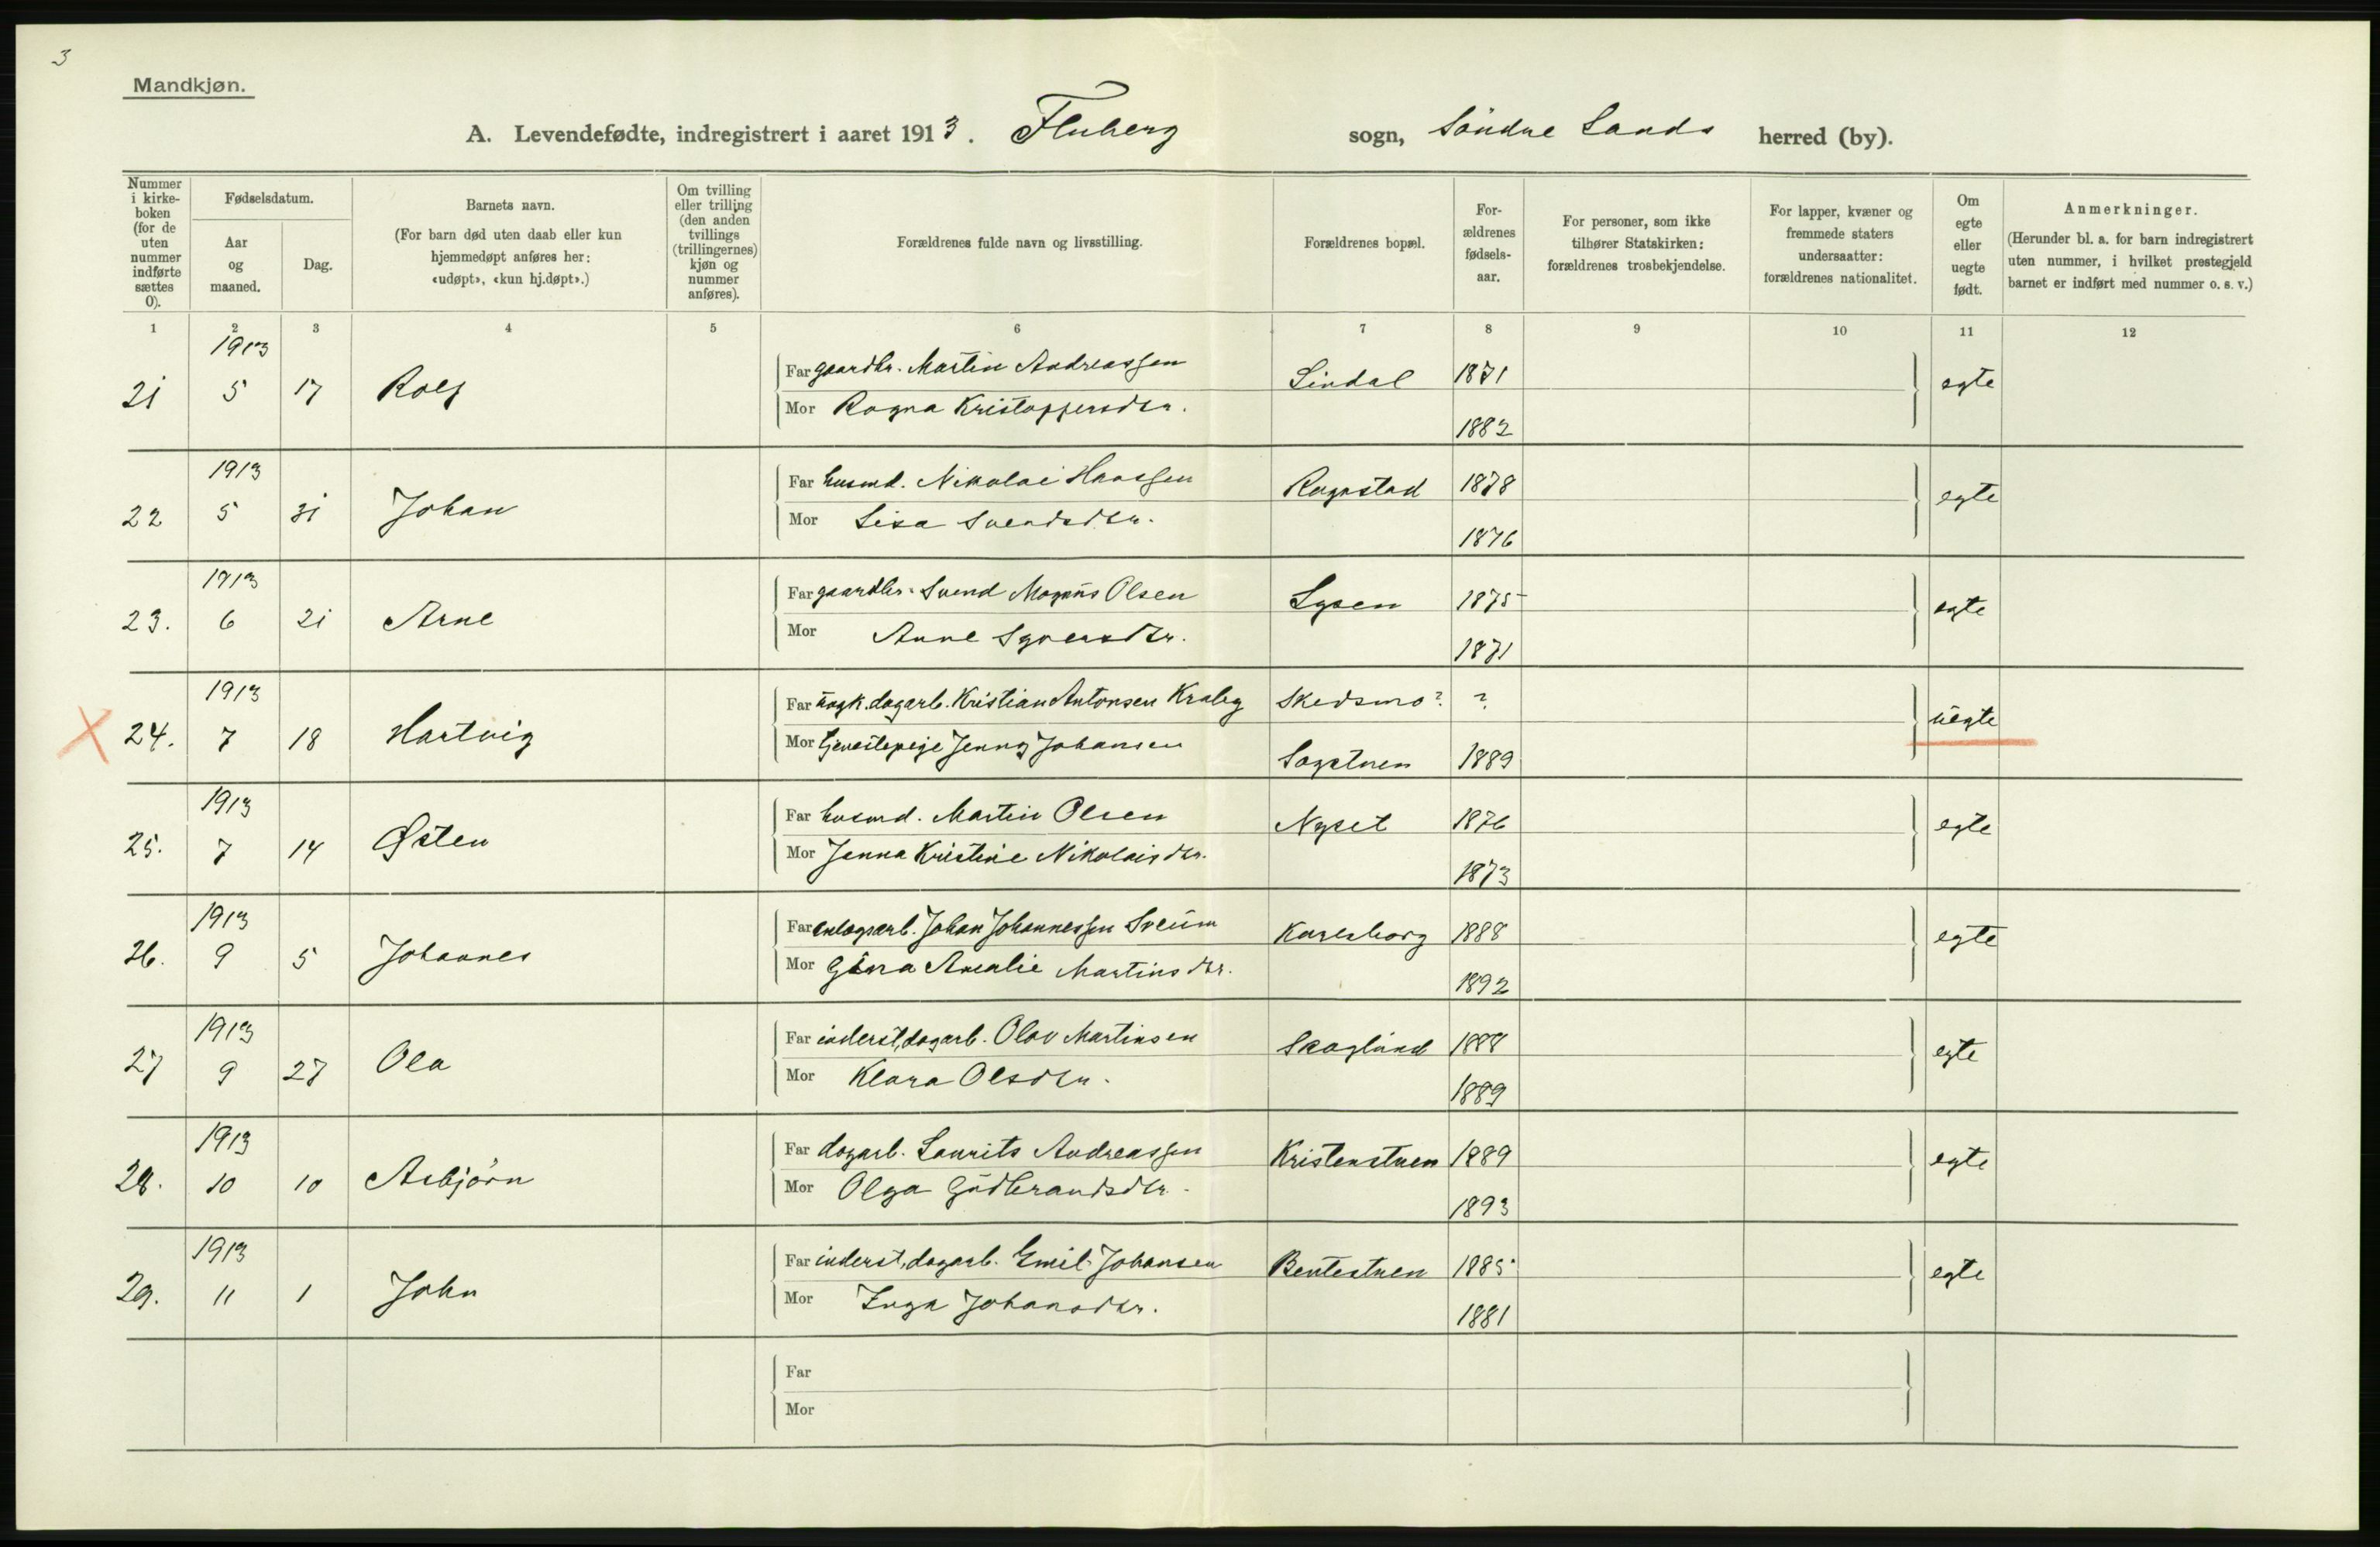 3
Mandkjøn.
A. Levendefødte, indregistrert i aaret 1913. Fluberg sogn, Söndre Lands herred (by).
Nummer i kirkeboken (for de uten nummer indførte sættes 0).
Fødselsdatum.
Aar og maaned.
Dag.
Barnets navn.
(For barn død uten daab eller kun hjemmedøpt anføres her: «udøpt», «kun hj.døpt».)
Om tvilling eller trilling (den anden tvillings (trillingernes) kjøn og nummer anføres).
Forældrenes fulde navn og livsstilling.
Forældrenes bopæl.
Forældrenes fødselsaar.
For personer, som ikke tilhører Statskirken: forældrenes trosbekjendelse.
For lapper, kvæner og fremmede staters undersaatter: forældrenes nationalitet.
Om egte eller uegte født.
Anmerkninger.
(Herunder bl. a. for barn indregistrert uten nummer, i hvilket prestegjeld barnet er indført med nummer o. s. v.)
1 2 3 4 5 6 7 8 9 10 11 12
21 1913 5 17 Rolf
Far gaardbr. Martin Andreassen Lindal 1871 egte
Mor Ragna Kristoffersdtr. 1882
22 1913 5 31 Johan
Far husmd. Nikolai Hanssen Rognstad 1878 egte
Mor Lisa Svendsdtr. 1876
23. 1913 6 21 Arne
Far gaardbr. Svend Magnus Olsen Lysen 1875 egte
Mor Anne Syversdtr. 1871
24. 1913 7 18 Hartvig
Far ungk. dagarb. Kristian Antonsen Kraby Skedsmo? ? uegte
Mor tjenestepige Jenny Johansen Sagstuen 1889
25. 1913 7 14 Østen
Far husmd. Martin Olsen Nyset 1876 egte
Mor Jenna Kristine Nikolaisdtr. 1873
26. 1913 9 5 Johannes
Far Johan Johannessen Sveum Karlsborg 1888 egte
Mor Gina Amalie Martinsdtr. 1892
27 1913 9 27 Ola
Far inderst, dagarb. Olav Martinsen Skoglund 1888 egte
Mor Klara Olsdtr. 1889
28. 1913 10 10 Asbjörn
Far dagarb. Laurits Andreassen Kristenstuen 1889 egte
Mor Olga Gudbrandsdtr. 1893
29. 1913 11 1 John
Far inderst, dagarb. Emil Johansen Bentestuen 1885 egte
Mor Inga Johansdtr. 1881
Far
Mor